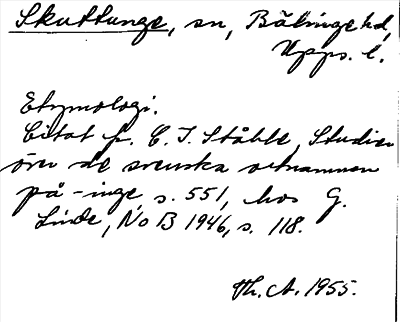 Skuttunge, sn, Bälinge hd,
Upps. l.
Etymologi.
Citat fr. C. I. Ståhle, Studier
över de svenska ortnamnen
på -inge, s. 551, hos G.
Linde, NoB 1946, s. 118.
Th. A. 1955.